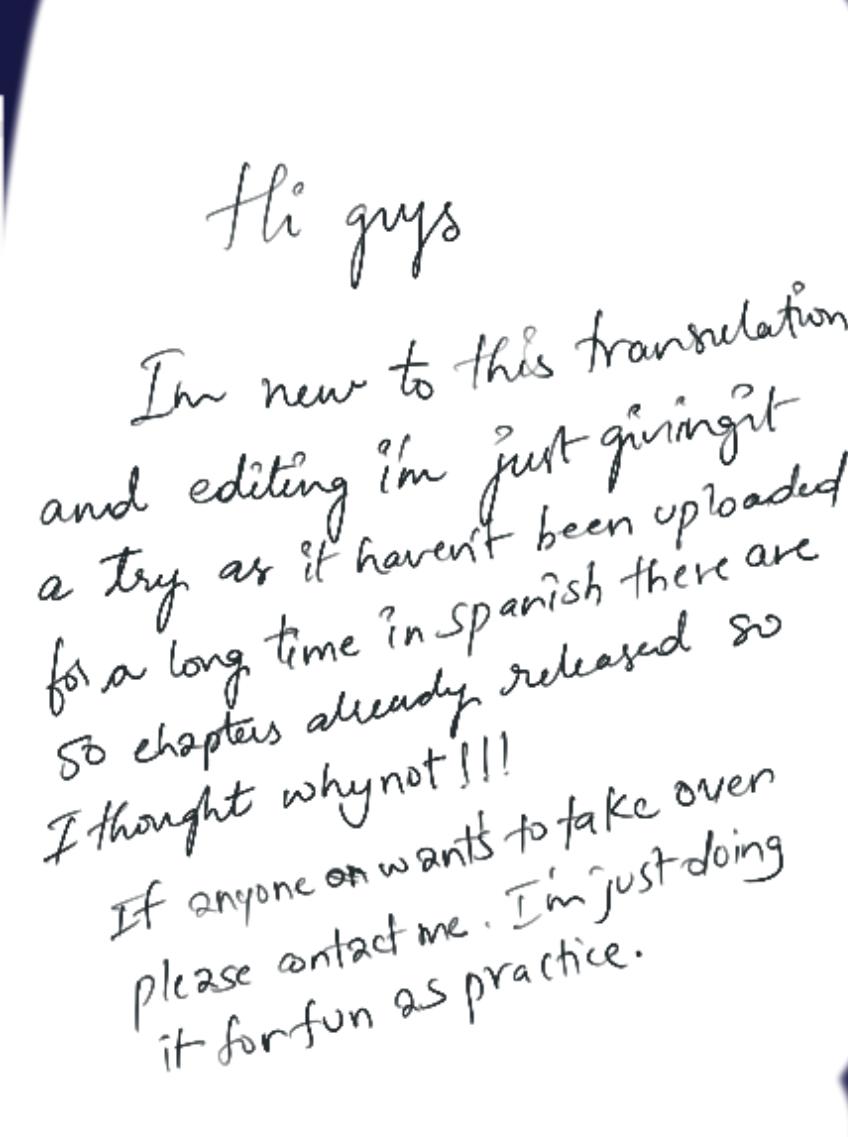 Hi guys
Im new to this transulation
and editing i'm just givingit
a try as it haven't been uploaded
for a long time in spanish there are
50 chapters already released so
I thought whynot!!!
If anyone wants to take over
please contact me. I'm just doing
it for fun as practice.